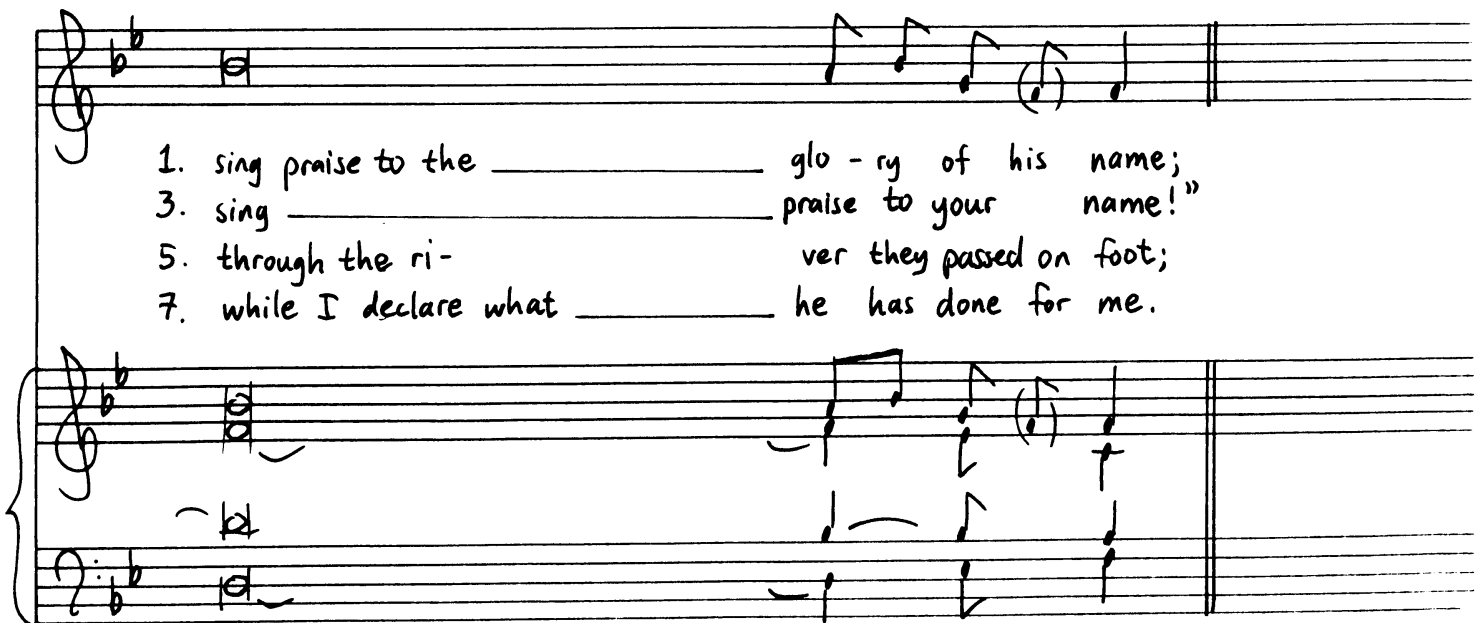 1. sing praise to the ____________ glo - ry of his name;
3. sing ____________ praise to your name!”
5. through the ri- ver they passed on foot;
7. while I declare what ____________ he has done for me.